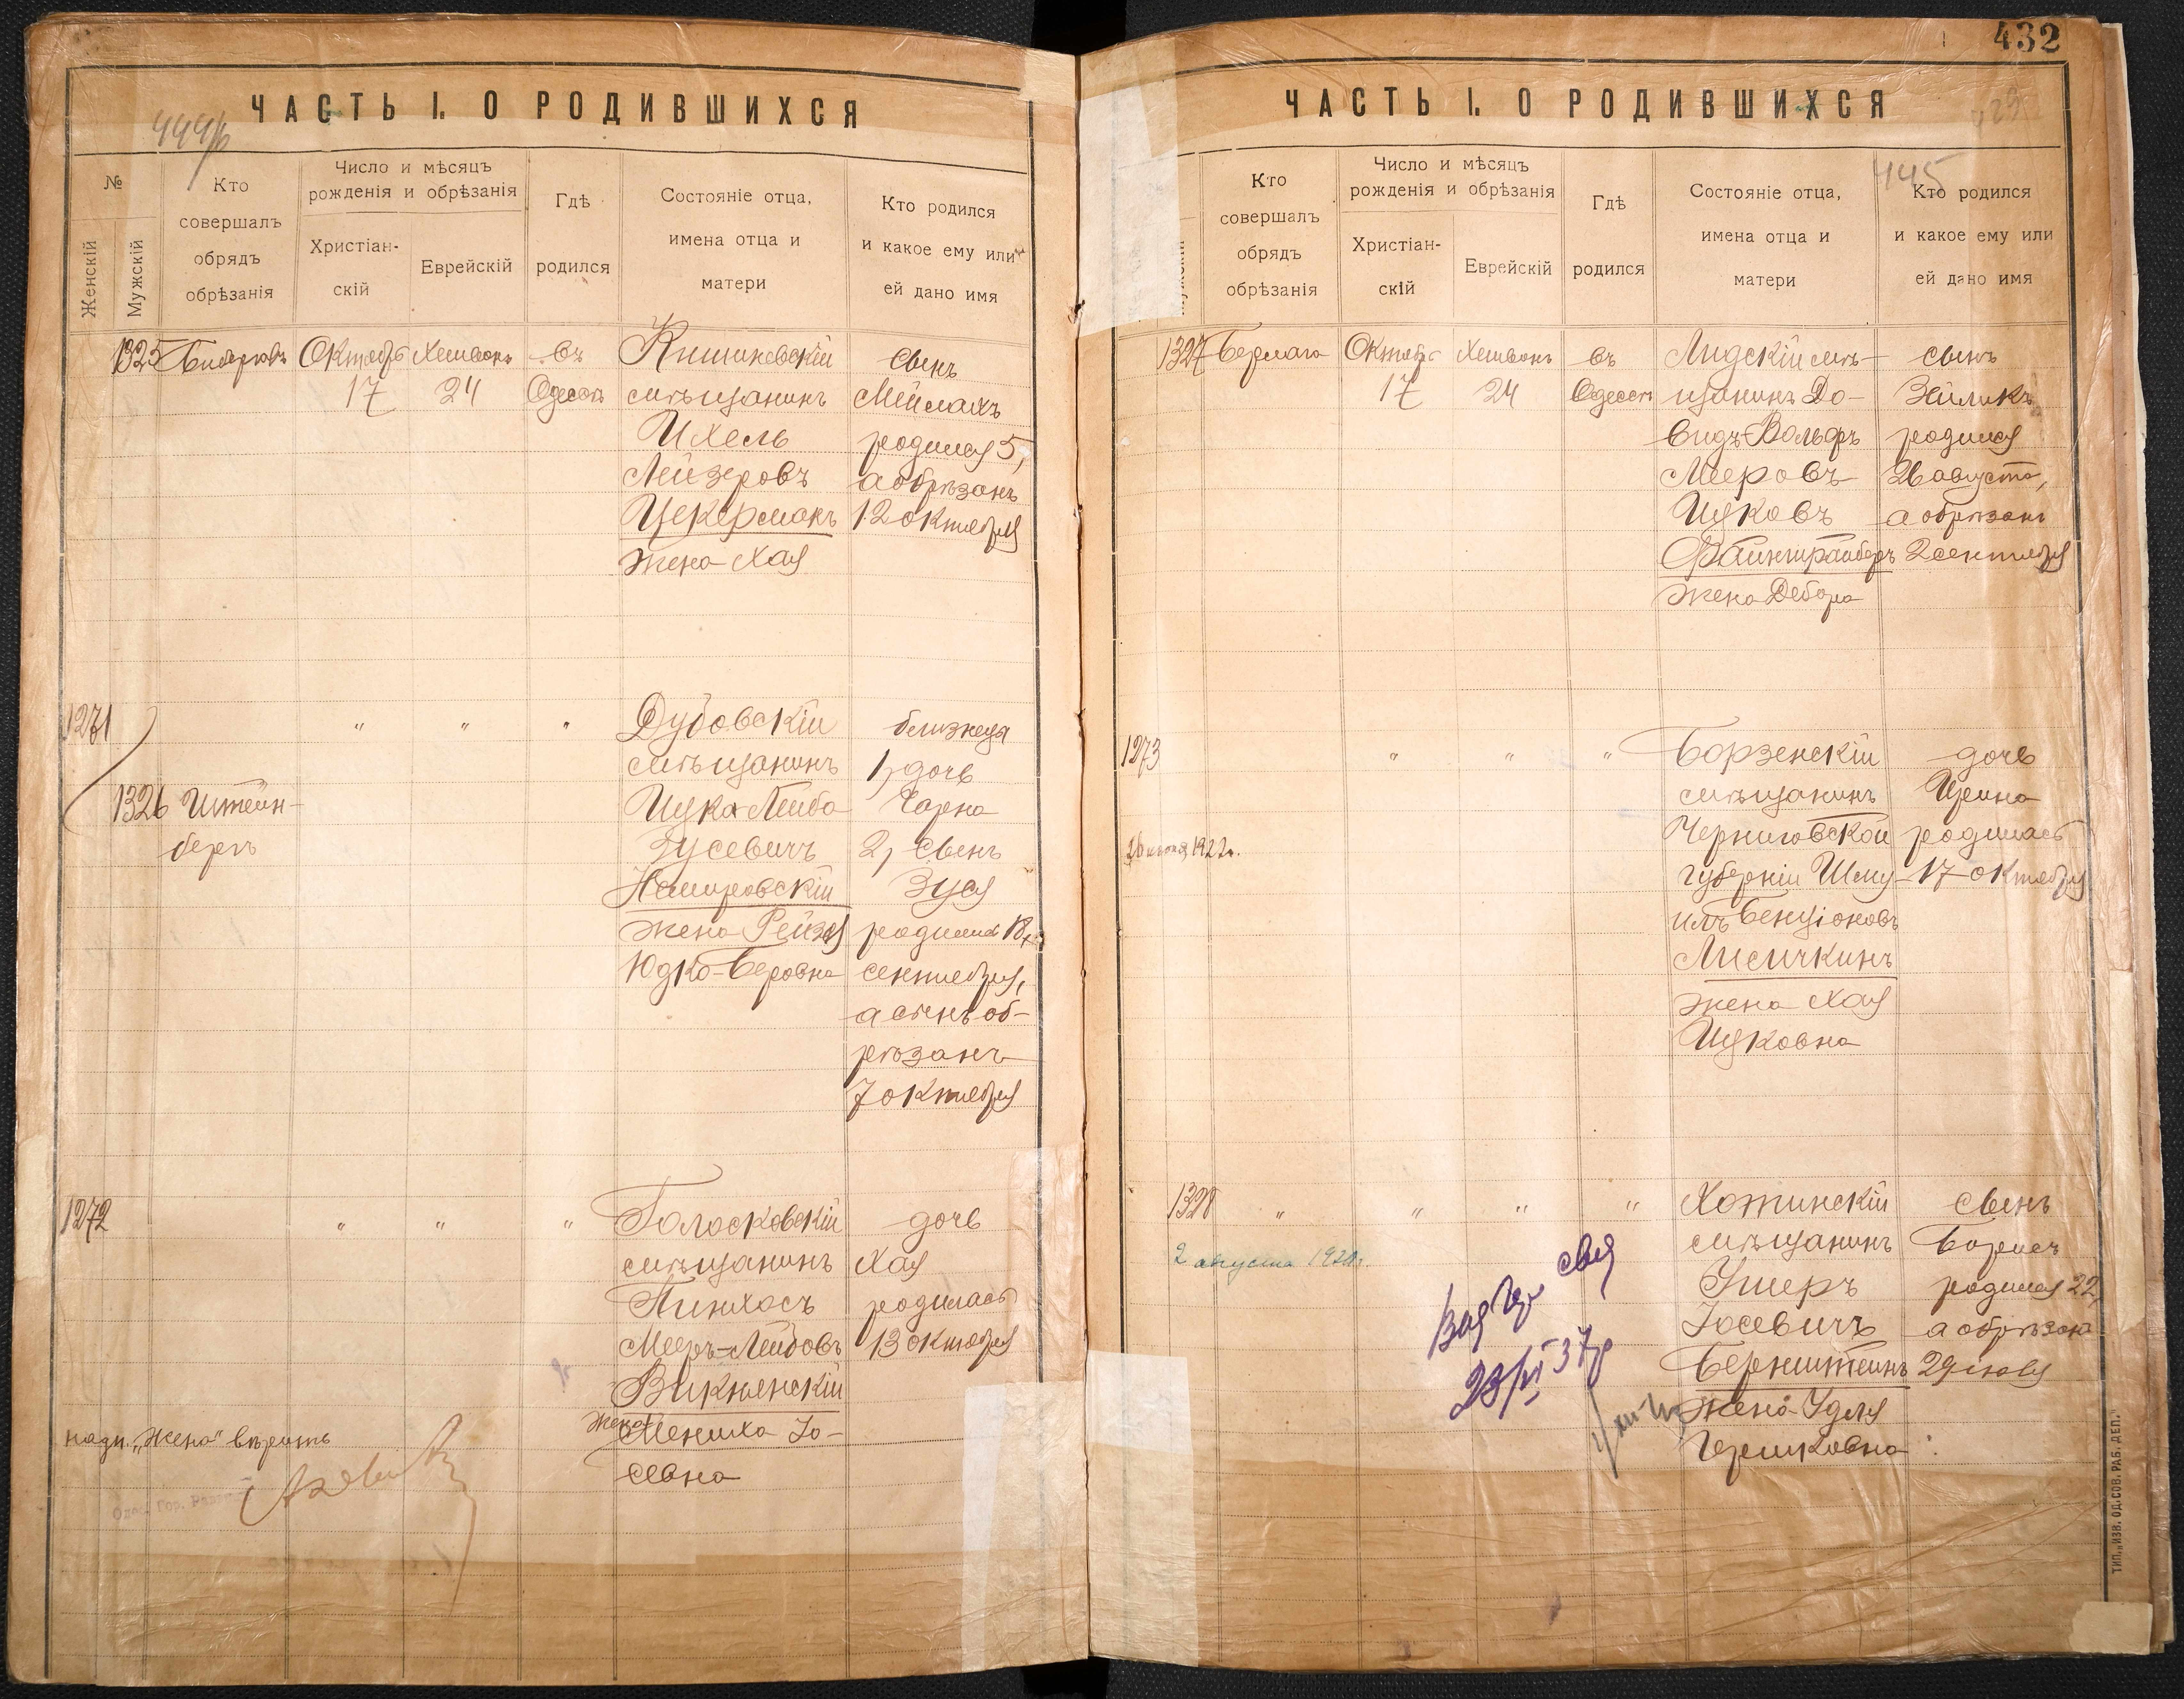 ЧАСТЬ I. О РОДИВШИХСЯ
№
Женскій
Мужскій
Кто
совершалъ
обрядъ
обрѣзанія
Число и мѣсяцъ
рожденія и обрѣзанія
Христіан-
скій
Еврейскій
Гдѣ
родился
Состояніе отца,
имена отца и
матери
Кто родился
и какое ему или
ей дано имя
1325
Октябрь
17
Хешвонъ
24
въ
Одессѣ
Кишиневскій
мѣщанинъ
Ихель
Лейзеровъ
Цекерманъ
жена Хая
сынъ
Меилахъ
родился 5,
а обрѣзанъ
12 октября
1271
1326
Штейн-
бергъ
"
"
"
Дубовскій
мѣщанинъ
Ицка-Лейба
Зусевичъ
Немировскій
жена Рейзя
Юдко-Беровна
близнецы
1, дочь
Чарна
2, сынъ
Зуся
родились
сентября,
а сынъ об-
рѣзанъ
7 октября
1272
"
"
"
Голосковскій
мѣщанинъ
Пинхосъ
Мееръ-Лейбовъ
жена
Мениха Іо-
севна
дочь
Хая
родилась
13 октября
надп. „Жена" вѣрить
432
ЧАСТЬ I. О РОДИВШИХСЯ
445
Кто
совершалъ
обрядъ
обрѣзанія
Число и мѣсяцъ
рожденія и обрѣзанія
Христіан-
скій
Еврейскій
Гдѣ
родился
Состояніе отца,
имена отца и
матери
Кто родился
и какое ему или
ей дано имя
1327
Бермага
Октябрь
17
Хешвонъ
24
въ
Одессѣ
Лидскій мѣ-
щанинъ До-
видъ-Вольфъ
Мееровъ-
Ицковъ
жена Дебора
сынъ
Зейликъ
родился
26 августа,
а обрѣзанъ
2 сентября
1273
"
"
"
Борзенскій
мѣщанинъ
Черниговской
губерніи Шму-
илъ Бенціоновъ
Лисичкинъ
жена Хая
Ицковна
дочь
Ирина
родилась
17 октября
1922г.
1328
"
"
"
"
Хотинскій
мѣщанинъ
Ушеръ
Іосевичъ
Бернштейнъ
жена Удля
Гершковна
сынъ
Борисъ
родился 22,
а обрѣзанъ
29 іюля
2 августа
23/VI 37г
ТИП. „ИЗВ. ОД. СОВ. РАБ. ДЕП."